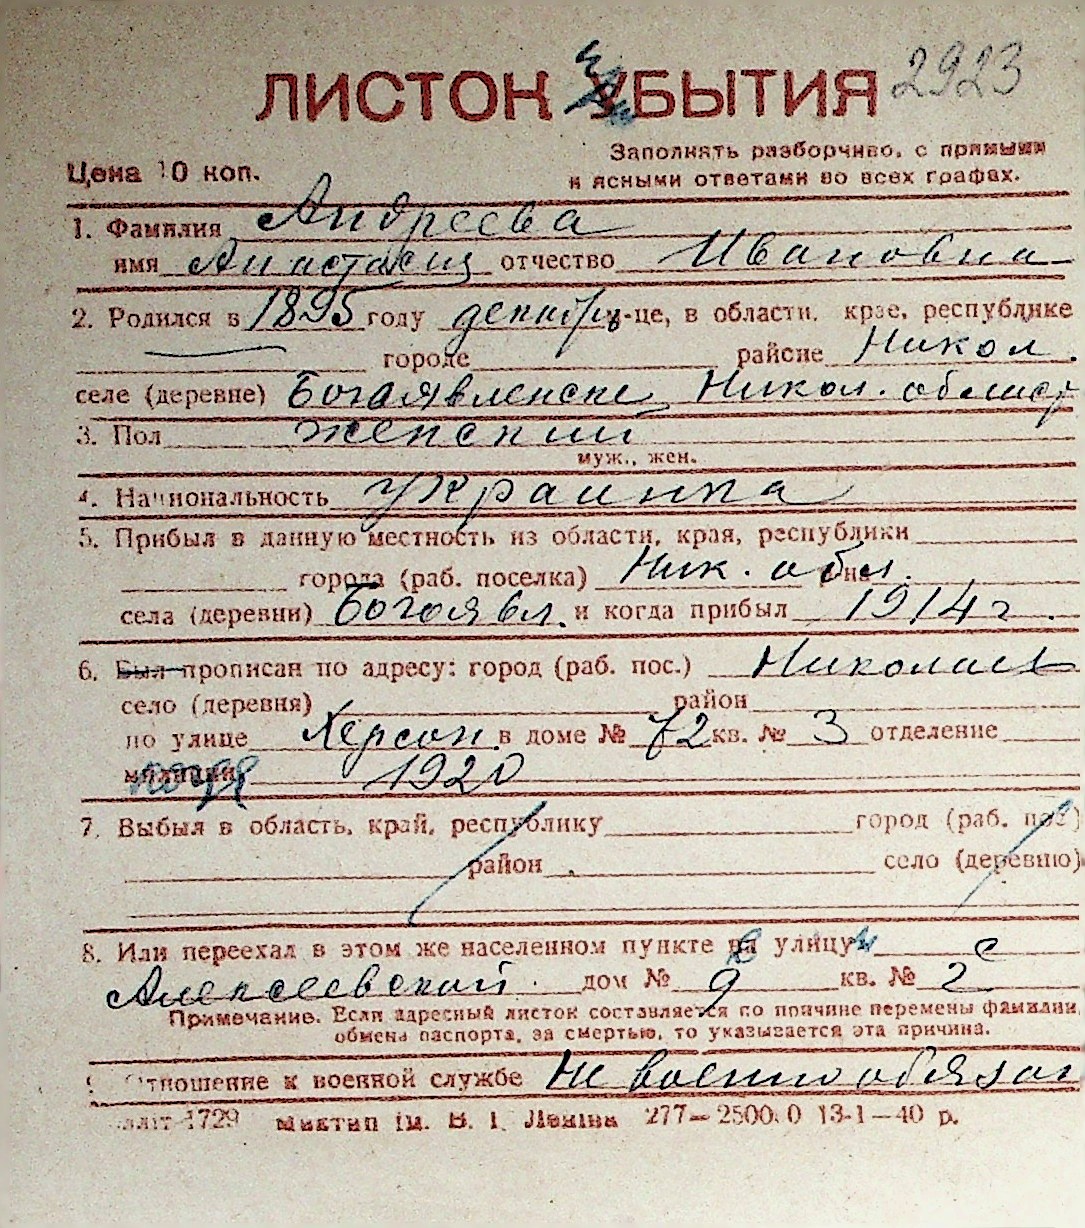 ЛИСТОК УБЫТИЯ
при
2923
Цена 10 коп.
Заполнять разборчиво, с прямыми
и ясными ответами во всех графах.
1. Фамилия Андреева
имя Анастасия отчество Ивановна
2. Родился в 1895 году декабре м-це, в области, крае, республике
городе районе Никол.
селе (деревне) Богоявленске Никол. област
3. Пол женский
муж., жен.
4. Национальность украинка
5. Прибыл в данную местность из области, края, республики
города (раб. поселка) Ник. обл. она
села (деревни) Богоявл. и когда прибыл 1914 г.
6. Был прописан по адресу: город (раб. пос.) Николаев
село (деревня) район
по улице Херсон. в доме № 72 кв. № 3 отделение
милиции 1920
7. Выбыл в область, край, республику город (раб. пос.)
район село (деревню)
8. Или переехал в этом же населенном пункте на улицу с
Алексеевской. дом № 9 кв. № 2
Примечание. Если адресный листок составляется по причине перемены фамилии,
обмена паспорта, за смертью, то указывается эта причина.
9. Отношение к военной службе Не военнообязан
4729 ім. В. І. Леніна 277—25000 13-1—40 р.